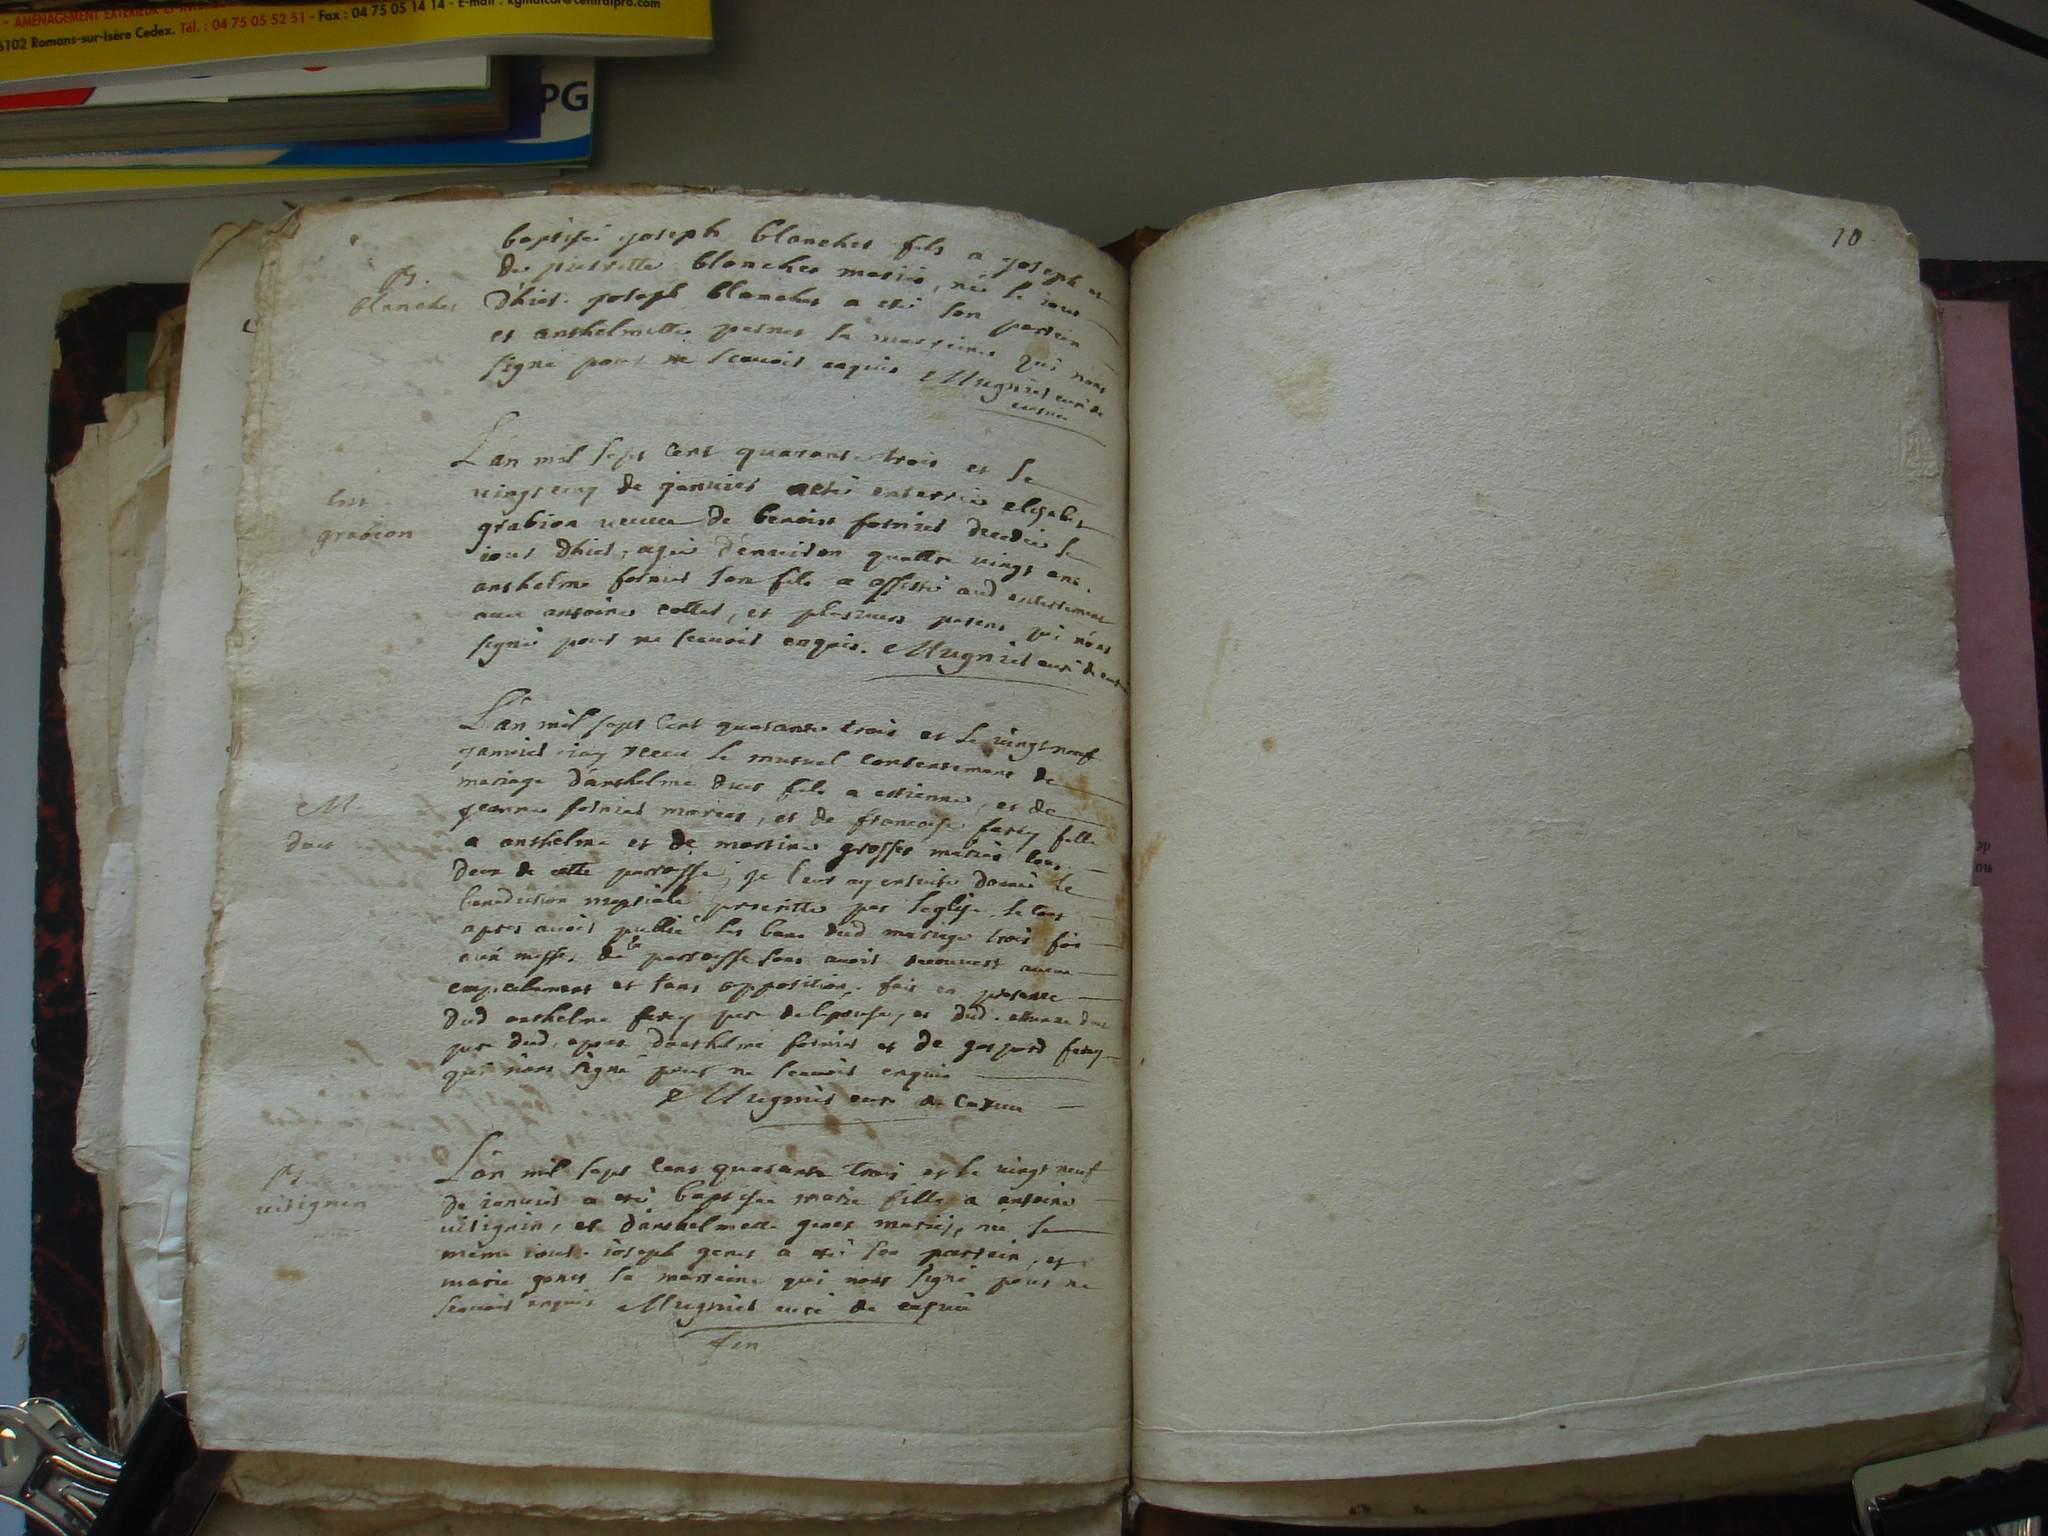 - AMÉNAGEMENT EXTÉRIEUR ET
- 04 75 05 52 51 - Fax : 04 75 05 14 14 - E-mail : kgmaicar@centralpro.com
6102 Romans-sur-Isère Cedex. Tél. : 04 75 05 52 51
PG
10
baptisé joseph blanchet fils a joseph et
de pierrette blanchet mariés, né le iour
B.
blanchet
d'hier. joseph blanchet a eté son parrein
et anthelmette pernet la marreine qui n'ont
signé pour ne scavoir enquis Mugnier curé de
L'an mil sept cent quarante trois et le
vingt cinq de janvier a eté enterrée elizabet
Ent.
grabion
grabion veuve de benoist fornier decedée le
iour d'hier, agée d'environ quattre vingt ans.
anthelme fornier son fils a assisté aud enterrement
avec antoine collet, et plusieurs parens qui n'ont
signé pour ne scavoir enquis. Mugnier curé de
L'an mil sept cent quarante trois et le vingt neuf
janvier i'ay receu le mutuel consentement de
mariage d'anthelme duc fils a estienne, et de
M.
duc
jeanne fornier mariés, et de francoise ferey fille
a anthelme et de martine grosset mariés tous
deux de cette parroisse, je leur ay ensuite donné la
benediction nuptiale prescritte par l'eglise. le tout
apres avoir publié les bans dud mariage trois fois
aux messes de la parroisse sans avoir decouvert aucun
empechement et sans opposition. fait en presence
dud anthelme ferey pere de l'epouse, et dud. estienne duc
pere dud. epoux d'anthelme fornier et de gaspard ferey
qui n'ont signé pour ne scavoir enquis
Mugnier curé de
B
vitignin
L'an mil sept cent quarante trois et le vingt neuf
de janvier a eté baptisée marie fille a antoine
vitignin, et d'anthelmette genet mariés, née le
même iour. joseph genet a eté son parrein, et
marie genet la marreine qui n'ont signé pour ne
scavoir enquis Mugnier curé de
fin